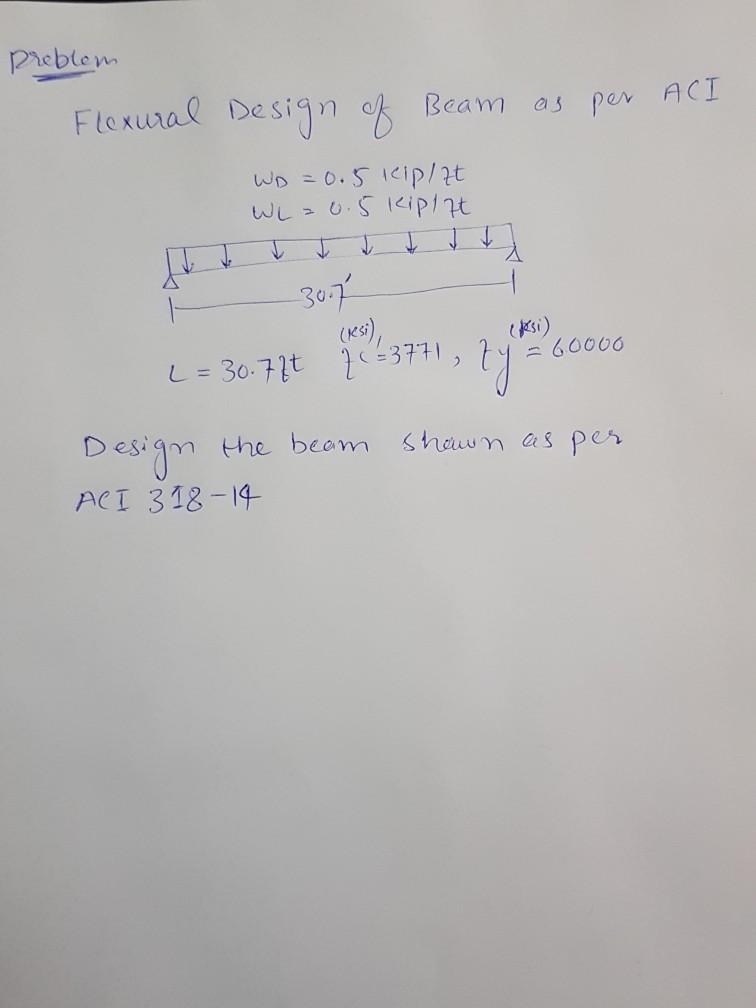 Problem
Flexural Design of Beam as per ACI
WD = 0.5 kip/ft
WL = 0.5 kip/ft
30.7'
L = 30.7ft f'c = 3771 (ksi), fy = 60000 (ksi)
Design the beam shown as per
ACI 318-14